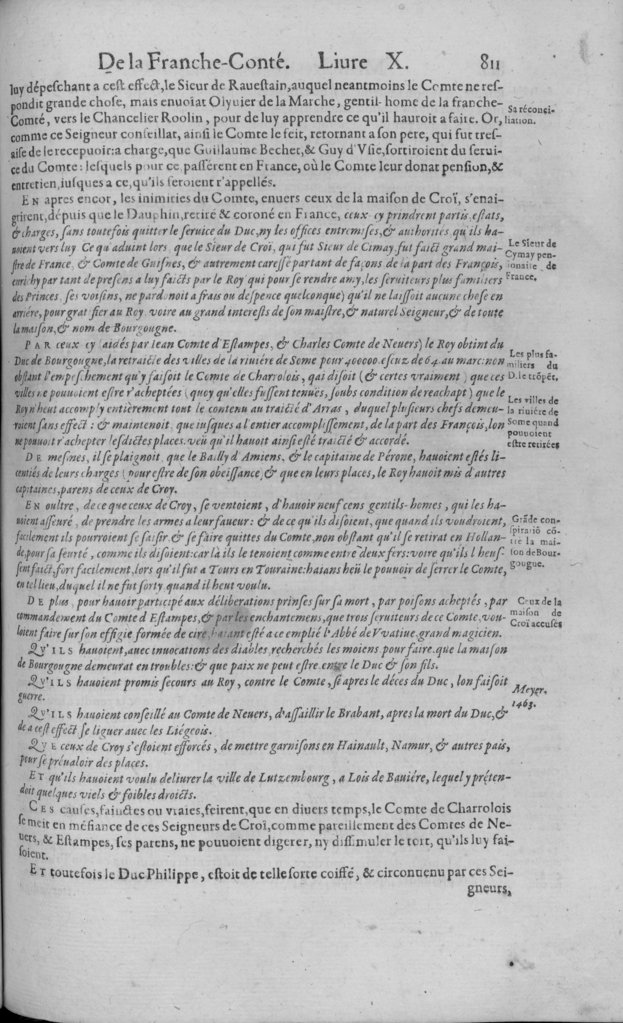 De la Franche-Conté. Liure X. 811
luy dépeschant a cest effect, le Sieur de Rauestain, auquel neantmoins le Comte ne res-
pondit grande chose, mais enuoiat Olyuier de la Marche, gentil-home de la franche-
Comté, vers le Chancelier Roolin, pour de luy apprendre ce qu'il hauroit a faire. Or,
comme ce Seigneur conseillat, ainsi le Comte le feit, retornant a son pere, qui fut tres-
aise de le recepuoir: a charge, que Guillaume Bechet, & Guy d'Vsie, sortiroient du serui-
ce du Comte: lesquels pour ce passérent en France, où le Comte leur donat pension, &
entretien, iusques a ce, qu'ils seroient r'appellés.
Sa réconci-
liation.
EN apres encor, les inimitiés du Comte, enuers ceux de la maison de Croï, s'enai-
grirent, dépuis que le Dauphin, retiré & coroné en France, ceux cy prindrent partis, estats,
& charges, sans toutefois quitter le seruice du Duc, ny les offices entremises, & authorités qu'ils ha-
uoient vers luy Ce qu'aduint lors, que le Sieur de Croï, qui fut Sieur de Cimay, fut faict grand mai-
stre de France, & Comte de Guisnes, & autrement caressé par tant de façons de la part des François,
enrichy par tant de presens a luy faicts par le Roy qui pour se rendre amy, les seruiteurs plus familiers
des Princes, ses voisins, ne pardonoit a frais ou despence quelconque) qu'il ne laissoit aucune chose en
arriére, pour gratifier au Roy, voire au grand interests de son maistre, & naturel Seigneur, & de toute
la maison, & nom de Bourgougne.
Le Sieur de
Cymay pen-
sionaire de
France.
PAR ceux cy (aidés par Iean Comte d'Estampes, & Charles Comte de Neuers) le Roy obtint du
Duc de Bourgougne, la retraicte des villes de la riuiére de Some pour 400000. escuz. de 64. au marc: non
obstant l'empeschement qu'y faisoit le Comte de Charrolois, qui disoit (& certes vraiment) que ces
villes ne pouuoient estre r'acheptées (quoy qu'elles fussent tenues, soubs condition de reachapt) que le
Roy n'heut accomply entiérement tout le contenu au traicté d'Arras, duquel plusieurs chefs demeu-
roient sans effect: & maintenoit, que iusques a l'entier accomplissement, de la part des François, lon
ne pouuoit r'achepter lesdictes places. veü qu'il hauoit ainsi esté traicté & accordé.
Les plus fa-
miliers du
D. le trõpẽt,
Les villes de
la riuiére de
Some quand
pouuoient
estre retirées
DE mesmes, il se plaignoit, que le Bailly d'Amiens, & le capitaine de Pérone, hauoient estés li-
centiés de leurs charges (pour estre de son obeissance) & que en leurs places, le Roy hauoit mis d'autres
capitaines, parens de ceux de Croy.
EN oultre, de ce que ceux de Croy, se ventoient, d'hauoir neuf cens gentils-homes, qui les ha-
uoient asseuré, de prendre les armes a leur faueur: & de ce qu'ils disoient, que quand ils voudroient,
facilement ils pourroient se saisir, & se faire quittes du Comte, non obstant qu'il se retirat en Hollan-
de, pour sa seurté, comme ils disoient: car là ils le tenoient comme entre deux fers: voire qu'ils l'heus-
sent faict, fort facilement, lors qu'il fut a Tours en Touraine: haians heü le pouuoir de serrer le Comte,
en tel lieu, duquel il ne fut sorty, quand il heut voulu.
Grãde con-
spiratiõ cõ-
tre la mai-
son de Bour-
gougne.
DE plus, pour hauoir participé aux déliberations prinses sur sa mort, par poisons acheptés, par
commandement du Comte d'Estampes, & par les enchantemens, que trois seruiteurs de ce Comte, vou-
loient faire sur son effigie formée de cire, haiant esté a ce emplié l'Abbé de Vvatiue, grand magicien.
Ceux de la
maison de
Croï accusés
QV'ILS hauoient, auec inuocations des diables, recherchés les moiens pour faire, que la maison
de Bourgougne demeurat en troubles: & que paix ne peut estre, entre le Duc & son fils.
QV'ILS hauoient promis secours au Roy, contre le Comte, si apres le déces du Duc, lon faisoit
guerre.
Meyer.
1463.
QV'ILS hauoient conseillé au Comte de Neuers, d'assaillir le Brabant, apres la mort du Duc, &
de a cest effect se liguer auec les Liégeois.
QVE ceux de Croy s'estoient efforcés, de mettre garnisons en Hainault, Namur, & autres pais,
pour se préualoir des places.
ET qu'ils hauoient voulu deliurer la ville de Lutzembourg, a Lois de Bauiére, lequel y préten-
doit quelques viels & foibles droicts.
CES causes, fainctes ou vraies, feirent, que en diuers temps, le Comte de Charrolois
se meit en méfiance de ces Seigneurs de Croï, comme pareillement des Comtes de Ne-
uers, & Estampes, ses parens, ne pouuoient digerer, ny dissimuler le tort, qu'ils luy fai-
soient.
ET toutefois le Duc Philippe, estoit de telle sorte coiffé, & circonuenu par ces Sei-
gneurs,